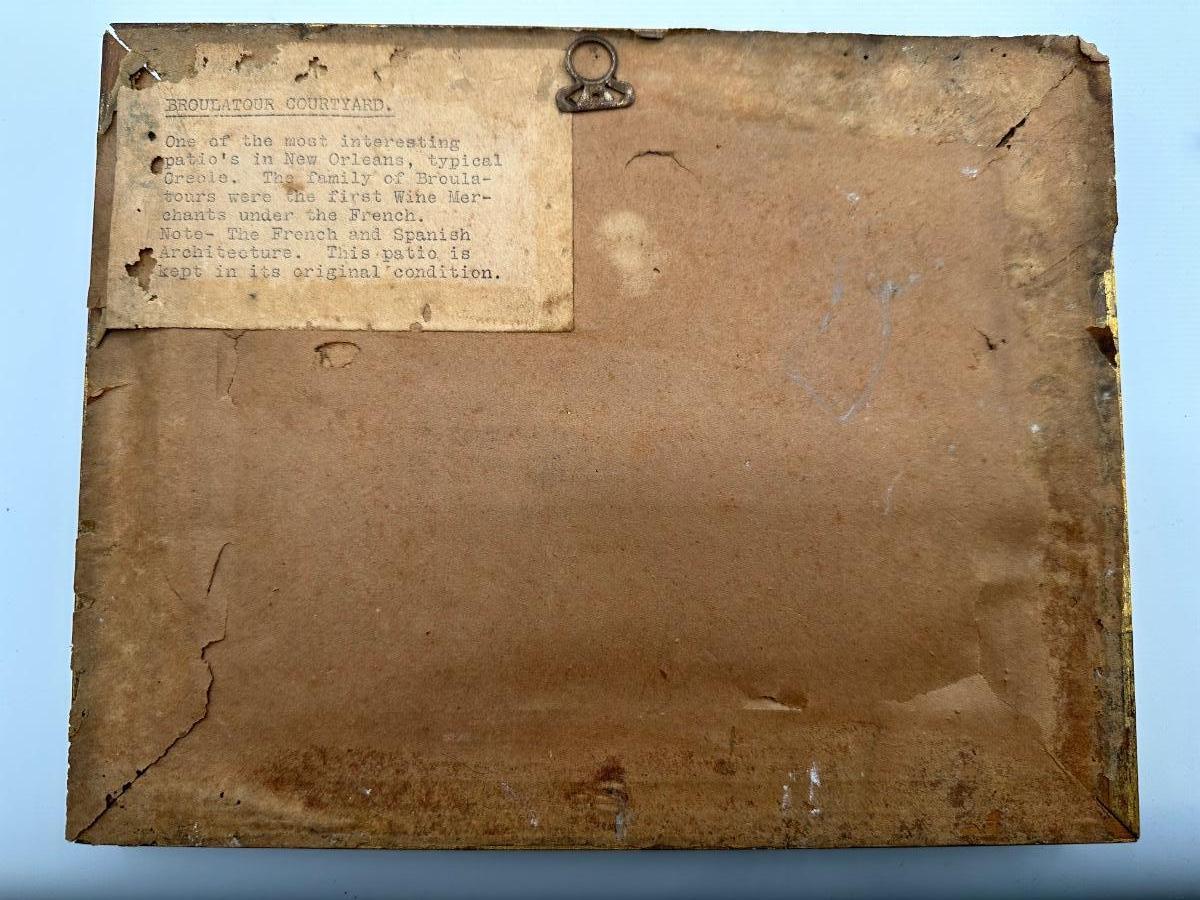 BROULATOUR COURTYARD.
One of the most interesting
patio's in New Orleans, typical
Creole. The family of Broula-
tours were the first Wine Mer-
chants under the French.
Note- The French and Spanish
Architecture. This patio is
kept in its original condition.